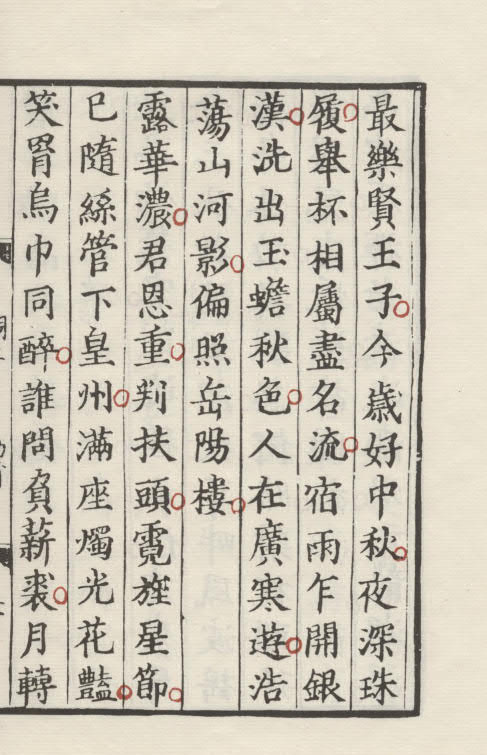 最樂賢王子今歲好中秋夜深珠
履舉杯相屬盡名流宿雨乍開銀
漢洗出玉蟾秋色人在廣寒遊浩
蕩山河影偏照岳陽樓
露華濃君恩重判扶頭霓旌星節
已隨絲管下皇州滿座燭光花豔
笑罥烏巾同醉誰問負薪裘月轉